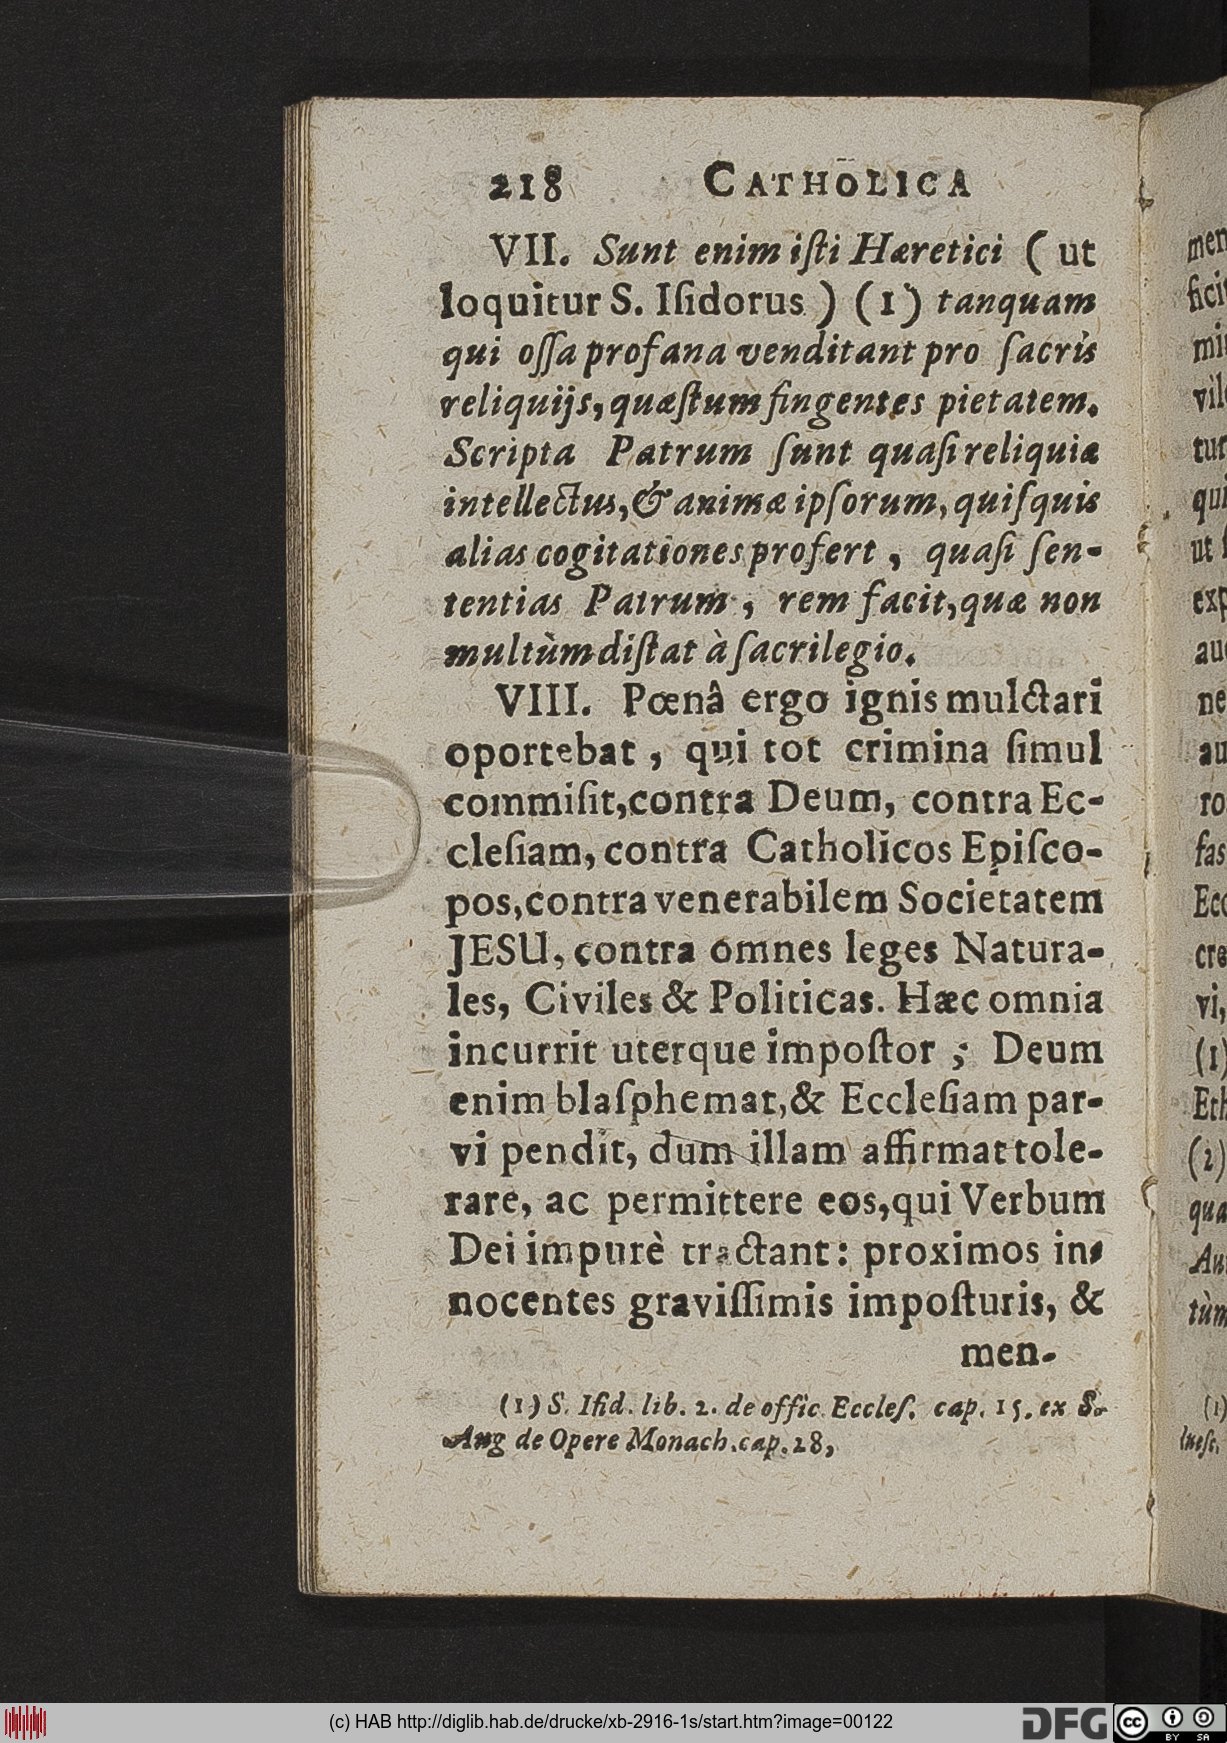 218 CATHOLICA
VII. Sunt enim iſti Hæretici ( ut
loquitur S. Iſidorus ) (1) tanquam
qui oſſa profana venditant pro ſacris
reliquijs, quæſtum fingentes pietatem.
Scripta Patrum ſunt quaſi reliquiæ
intellectus, & animæ ipſorum, quiſquis
alias cogitationes profert , quaſi ſen-
tentias Patrum , rem facit, quæ non
multùm diſtat à ſacrilegio.
VIII. Pœnâ ergo ignis mulctari
oportebat , qui tot crimina ſimul
commiſit, contra Deum, contra Ec-
cleſiam, contra Catholicos Epiſco-
pos, contra venerabilem Societatem
JESU, contra omnes leges Natura-
les, Civiles & Politicas. Hæc omnia
incurrit uterque impoſtor ; Deum
enim blaſphemat, & Eccleſiam par-
vi pendit, dum illam affirmat tole-
rare, ac permittere eos, qui Verbum
Dei impurè tractant: proximos in-
nocentes graviſſimis impoſturis, &
men-
(1) S. Iſid. lib. 2. de offic. Eccleſ. cap. 15. ex S.
Aug de Opere Monach. cap. 28,
men
fici
vil
tur
qui
ut
exp
au
ne
au
ro
fas
Ecc
cre
vi,
(1)
Eth
(2)
qua
tùm
(1)
(c) HAB http://diglib.hab.de/drucke/xb-2916-1s/start.htm?image=00122
DFG
cc BY SA